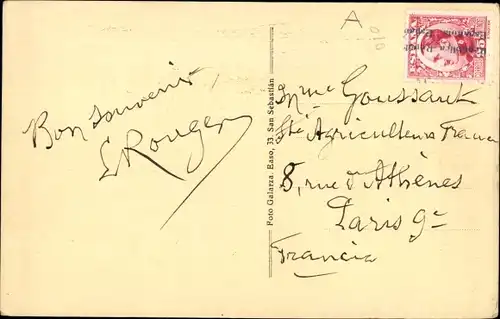 A
Bon Souvenir
E Rouger
Foto Galarza. Easo, 33. San Sebastián
Mme Goussault
Sté Agriculteurs France
8, rue d'Athènes
Paris 9e
Francia
República
Española